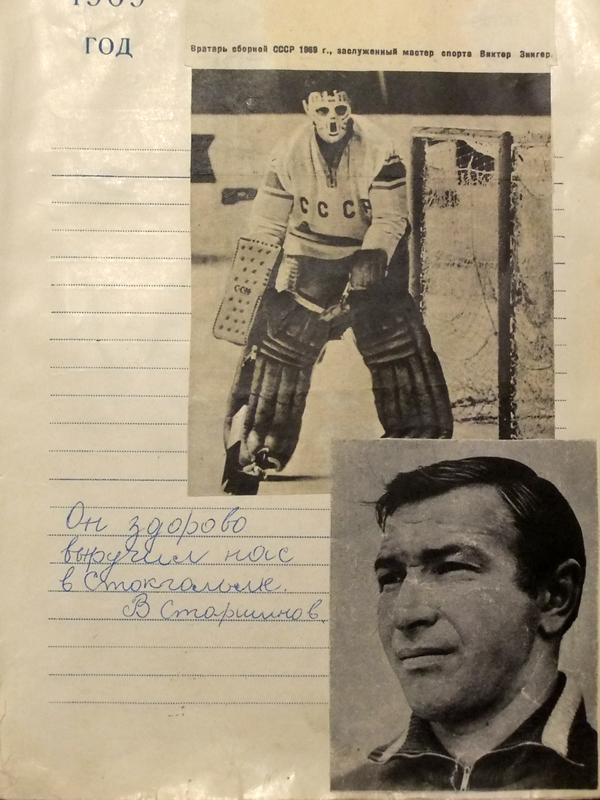 1969
ГОД
Вратарь сборной СССР 1969 г., заслуженный мастер спорта Виктор Зингер.
СССР
ССМ
Он здорово
выручил нас
в Стокгольме.
В Старшинов.